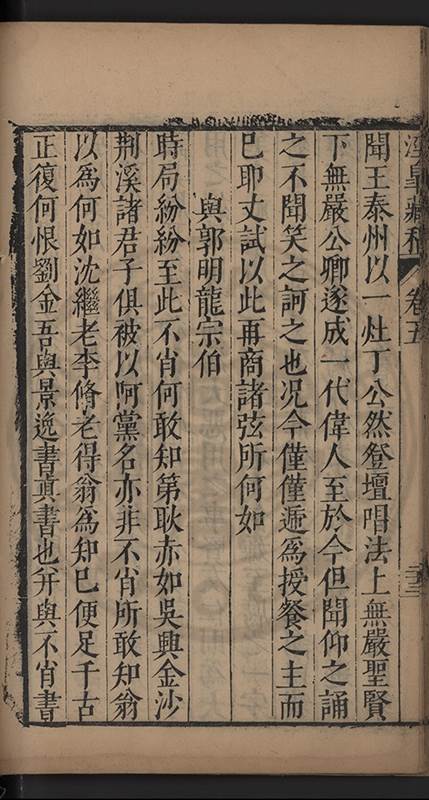 涇臯藏稿 卷五 二三
聞王泰州以一灶丁公然登壇唱法上無嚴聖賢
下無嚴公卿遂成一代偉人至於今但聞仰之誦
之不聞笑之訶之也况今僅僅遞爲授餐之主而
已耶丈試以此再商諸弦所何如
與郭明龍宗伯
時局紛紛至此不肖何敢知第耿赤如吳興金沙
荆溪諸君子俱被以阿黨名亦非不肖所敢知翁
以爲何如沈繼老李脩老得翁爲知已便足千古
正復何恨劉金吾與景逸書眞書也并與不肖書